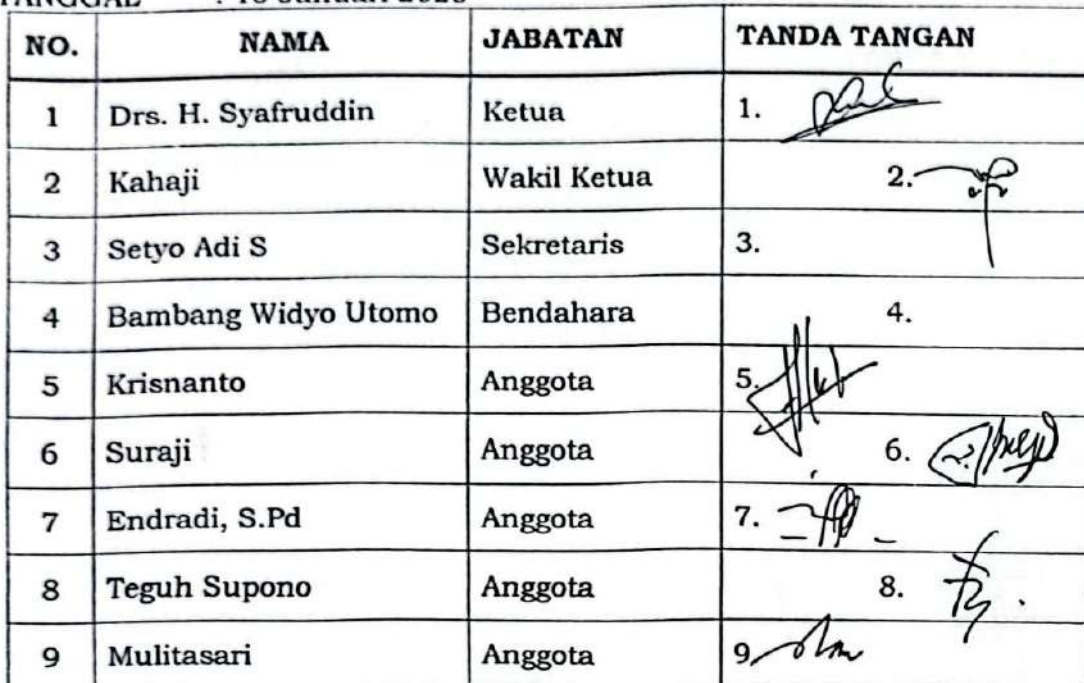 NO. NAMA JABATAN TANDA TANGAN
1 Drs. H. Syafruddin Ketua 1.
2 Kahaji Wakil Ketua 2.
3 Setyo Adi S Sekretaris 3.
4 Bambang Widyo Utomo Bendahara 4.
5 Krisnanto Anggota 5.
6 Suraji Anggota 6.
7 Endradi, S.Pd Anggota 7.
8 Teguh Supono Anggota 8.
9 Mulitasari Anggota 9